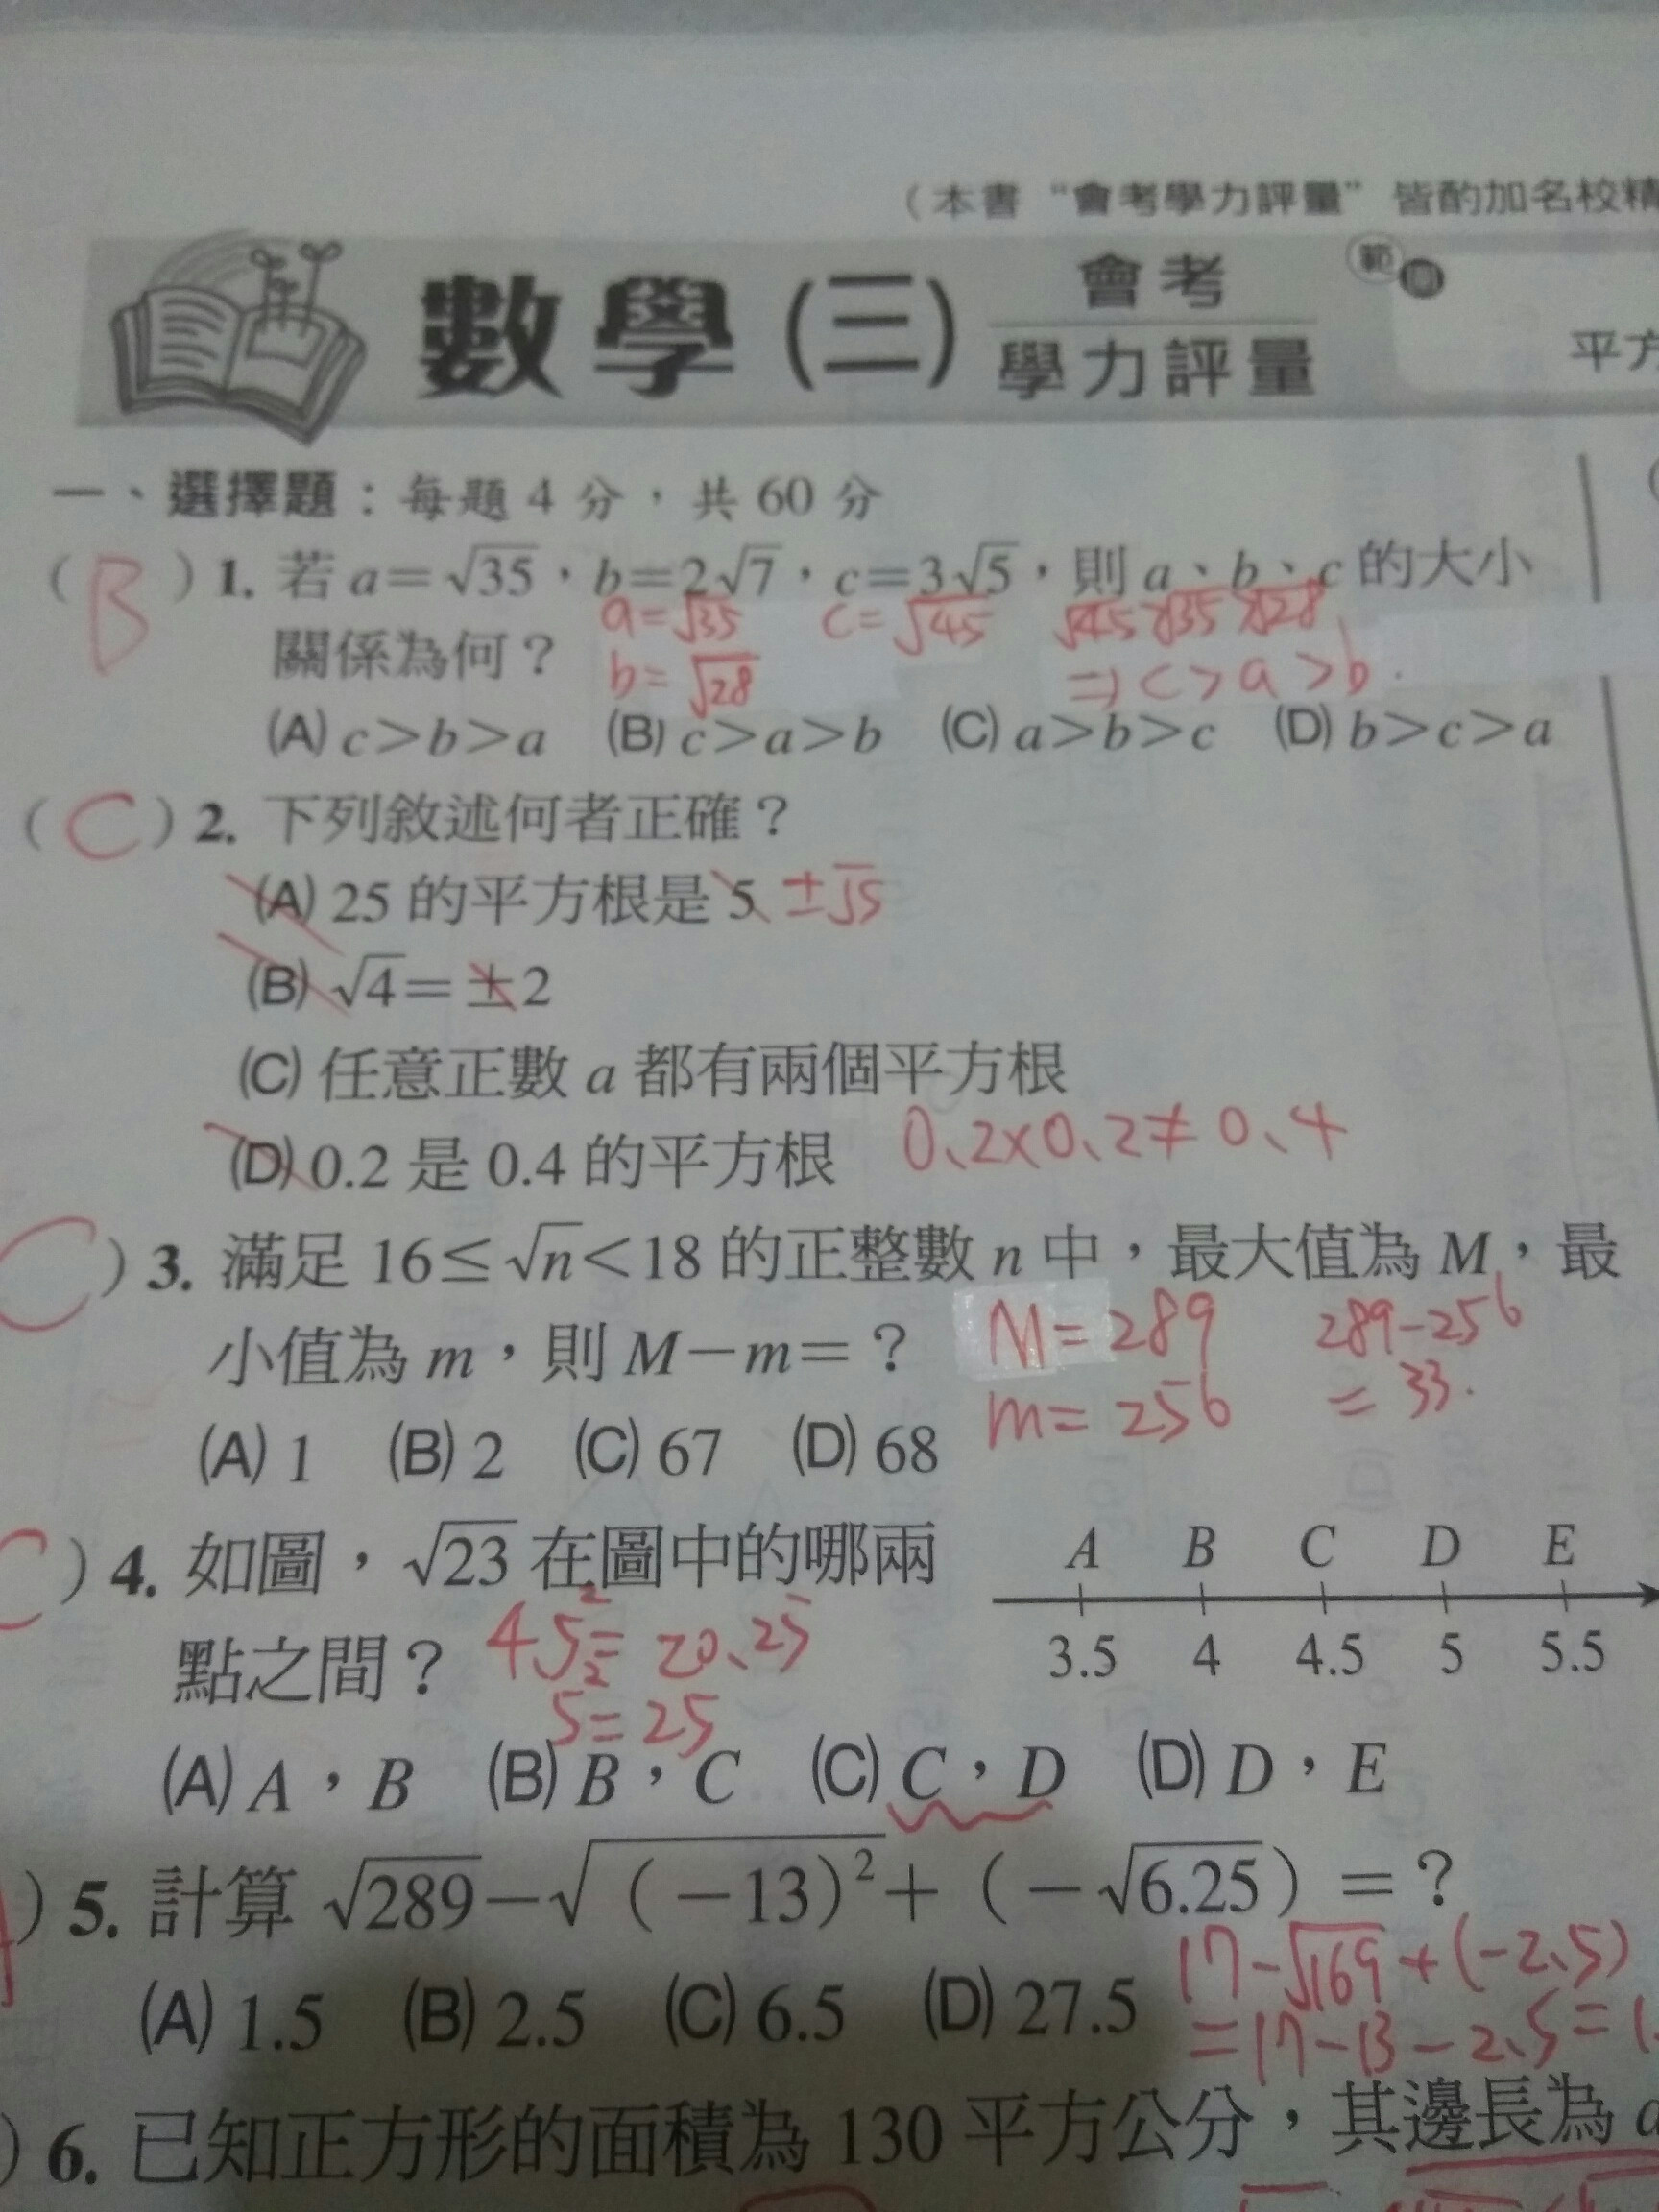 (本書“會考學力評量”皆酌加名校精
數學(三) 會考 學力評量 範圍
平方
一、選擇題：每題 4 分，共 60 分
( B ) 1. 若 a=√35，b=2√7，c=3√5，則 a、b、c 的大小
a=√35 c=√45 √45>√35>√28
關係為何？
b=√28 ⇒ c>a>b.
(A) c>b>a (B) c>a>b (C) a>b>c (D) b>c>a
( C ) 2. 下列敘述何者正確？
(A) 25 的平方根是 5 ±√5
(B) √4=±2
(C) 任意正數 a 都有兩個平方根
(D) 0.2 是 0.4 的平方根 0.2×0.2≠0.4
C ) 3. 滿足 16≤√n<18 的正整數 n 中，最大值為 M，最
小值為 m，則 M－m=？ M=289 289-256
m=256 =33.
(A) 1 (B) 2 (C) 67 (D) 68
C ) 4. 如圖，√23 在圖中的哪兩
點之間？ 4.5²=20.25
5²=25
A B C D E
3.5 4 4.5 5 5.5
(A) A，B (B) B，C (C) C，D (D) D，E
) 5. 計算 √289－√(－13)²＋(－√6.25)=？
17-√169+(-2.5)
(A) 1.5 (B) 2.5 (C) 6.5 (D) 27.5
=17-13-2.5=1.
) 6. 已知正方形的面積為 130 平方公分，其邊長為 a